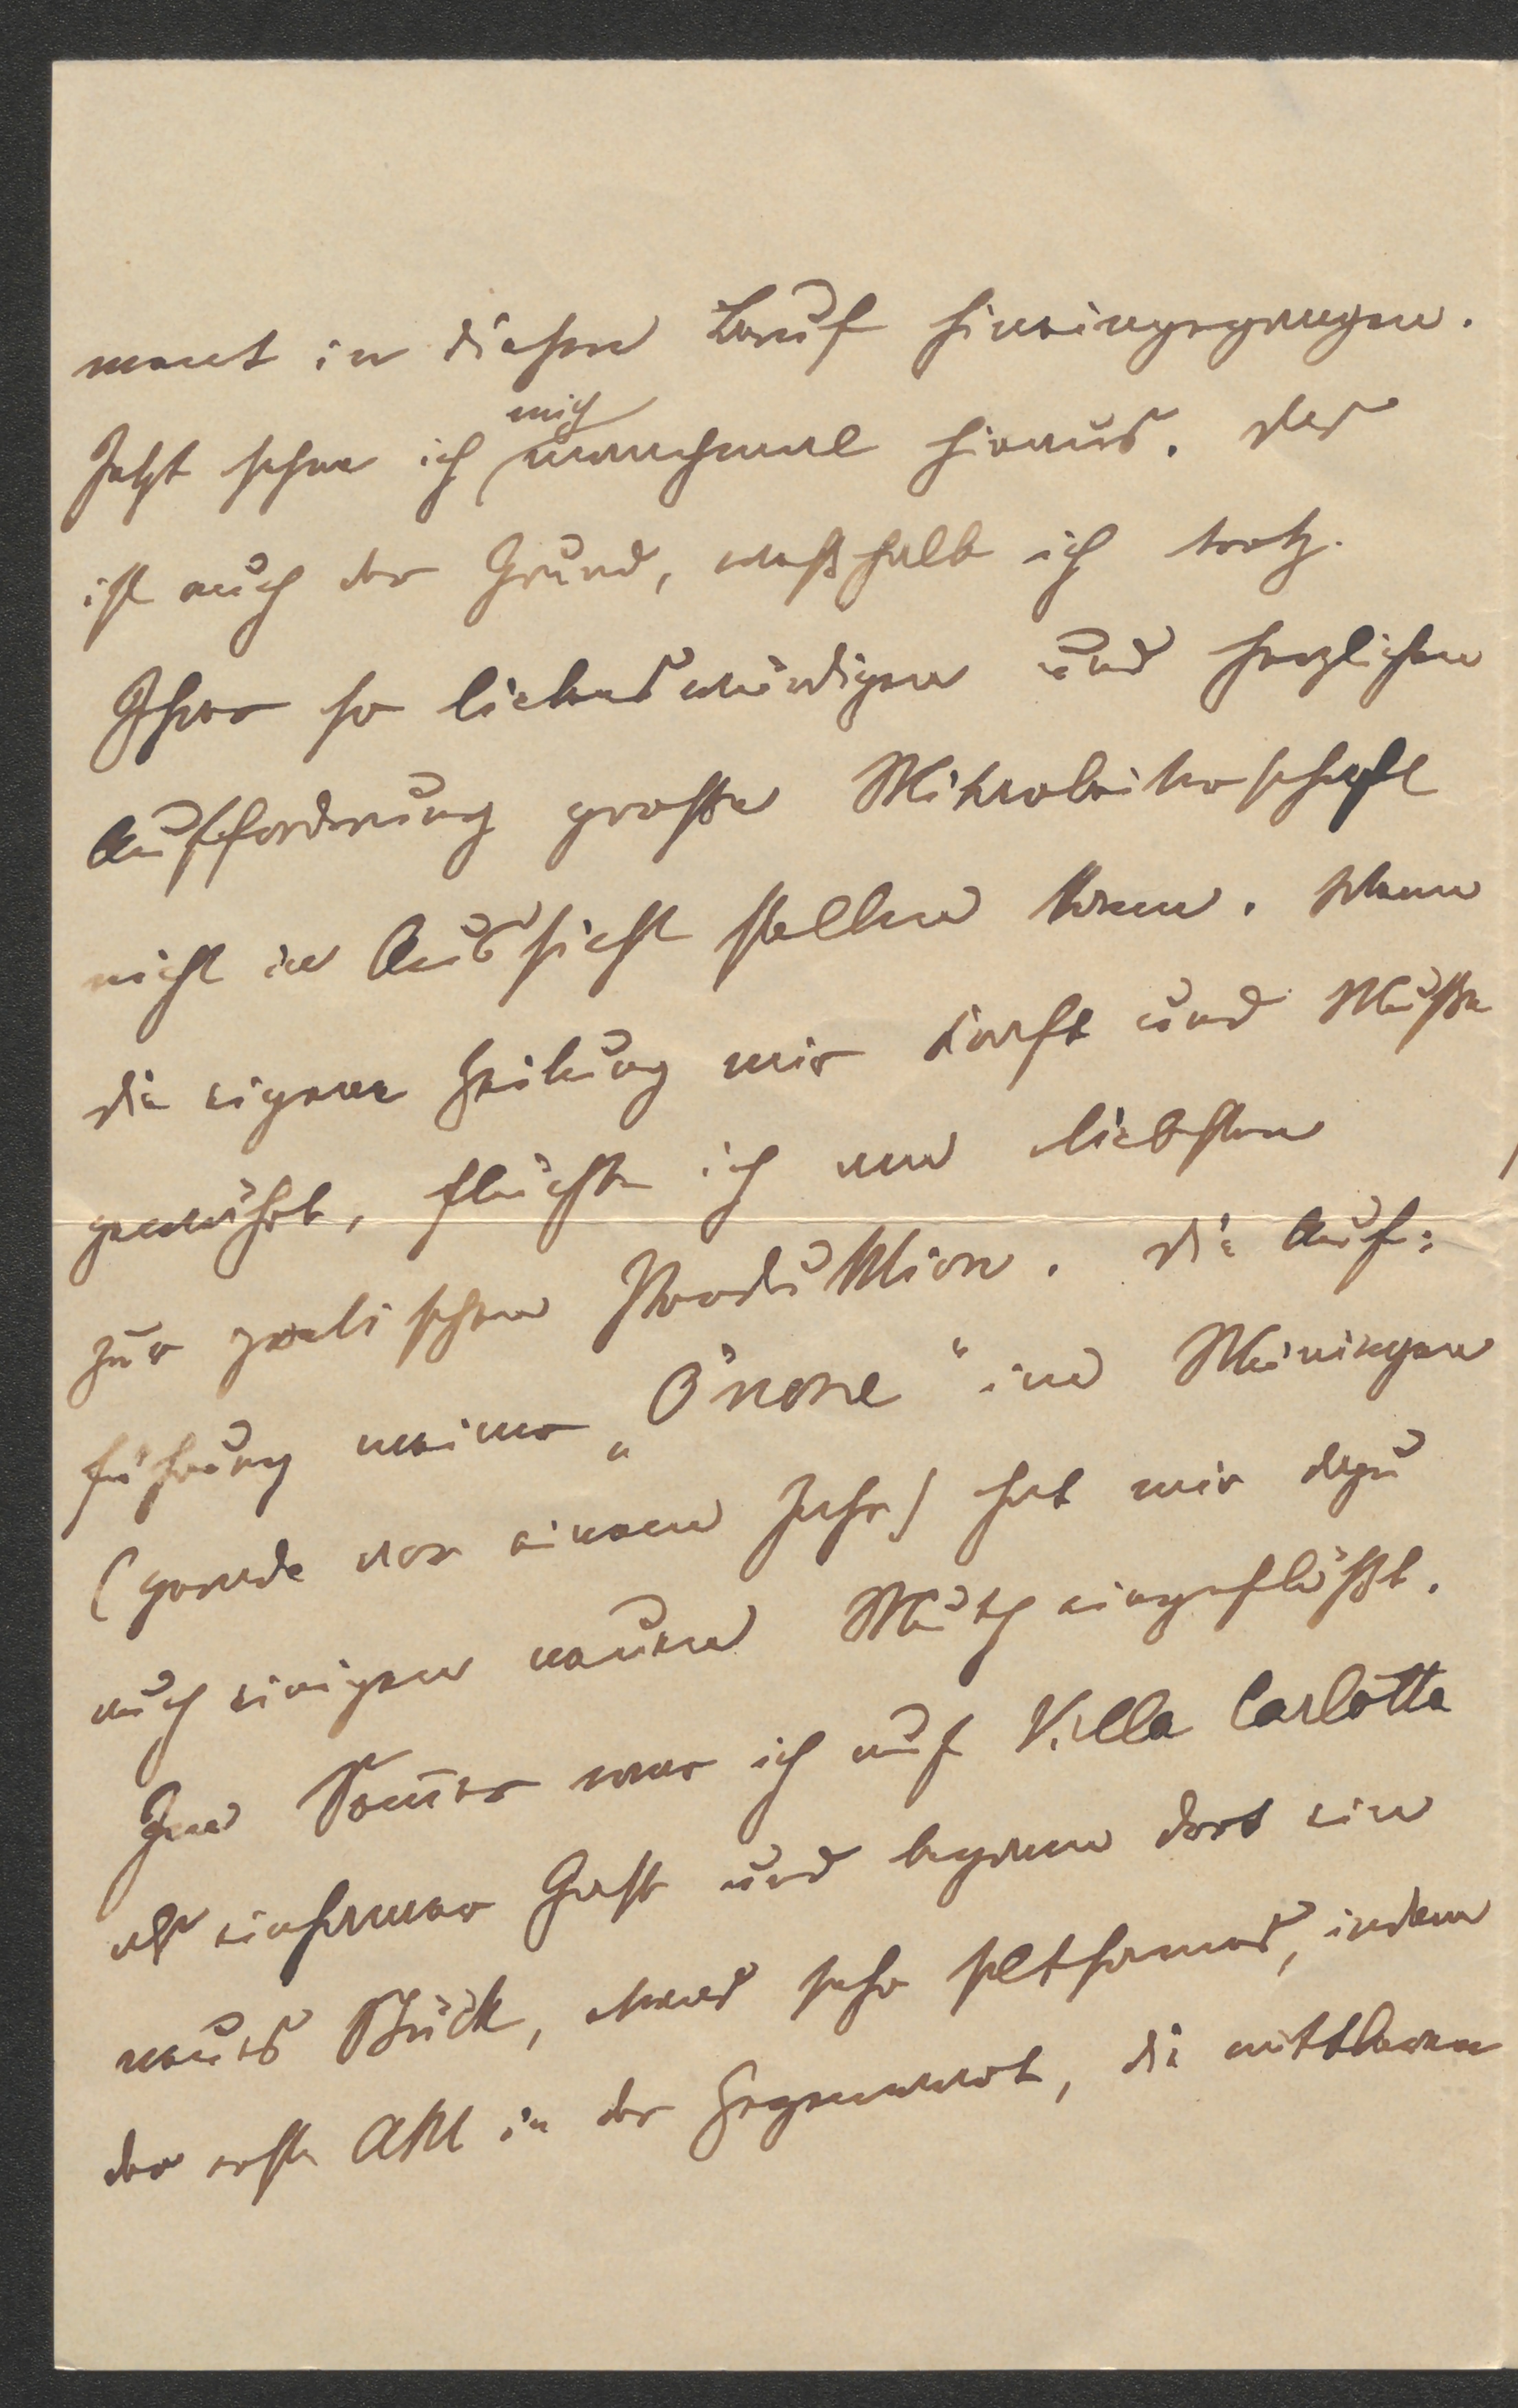 ment in diesen Beruf hineingegangen.
Jetzt sehne ich mich manchmal hinaus. Das
ist auch der Grund, weßhalb ich trotz
Ihrer so liebenswürdigen und herzlichen
Aufforderung große Mitarbeiterschaft
nicht in Aussicht stellen kann. Wenn
die eigene Zeitung mir Kraft und Muße
gewährt, flüchte ich am liebsten
zur poetischen Produktion. Die Auf=
führung meiner „Önone" in Meiningen
(gerade vor einem Jahr) hat mir dazu
auch einigen neuen Muth eingeflößt.
Im Som̅er war ich auf Villa Carlotta
als einsamer Gast und begann dort ein
neues Stück, etwas sehr seltsames, indem
der erste Akt in der Gegenwart, die mittleren